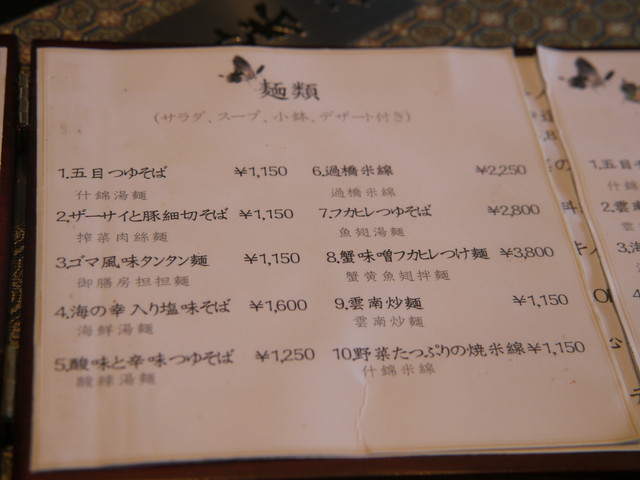 麺類
(サラダ、スープ、小鉢、デザート付き)
1.五目つゆそば ¥1,150
什錦湯麺
2.ザーサイと豚細切そば ¥1,150
搾菜肉絲麺
3.ゴマ風味タンタン麺 ¥1,150
御膳房担担麺
4.海の幸入り塩味そば ¥1,600
海鮮湯麺
5.酸味と辛味つゆそば ¥1,250
酸辣湯麺
6.過橋米線 ¥2,250
過橋米線
7.フカヒレつゆそば ¥2,800
魚翅湯麺
8.蟹味噌フカヒレつけ麺 ¥3,800
蟹黄魚翅拌麺
9.雲南炒麺 ¥1,150
雲南炒麺
10.野菜たっぷりの焼米線 ¥1,150
什錦米線
1.五目
什錦
2.雲南
雲南